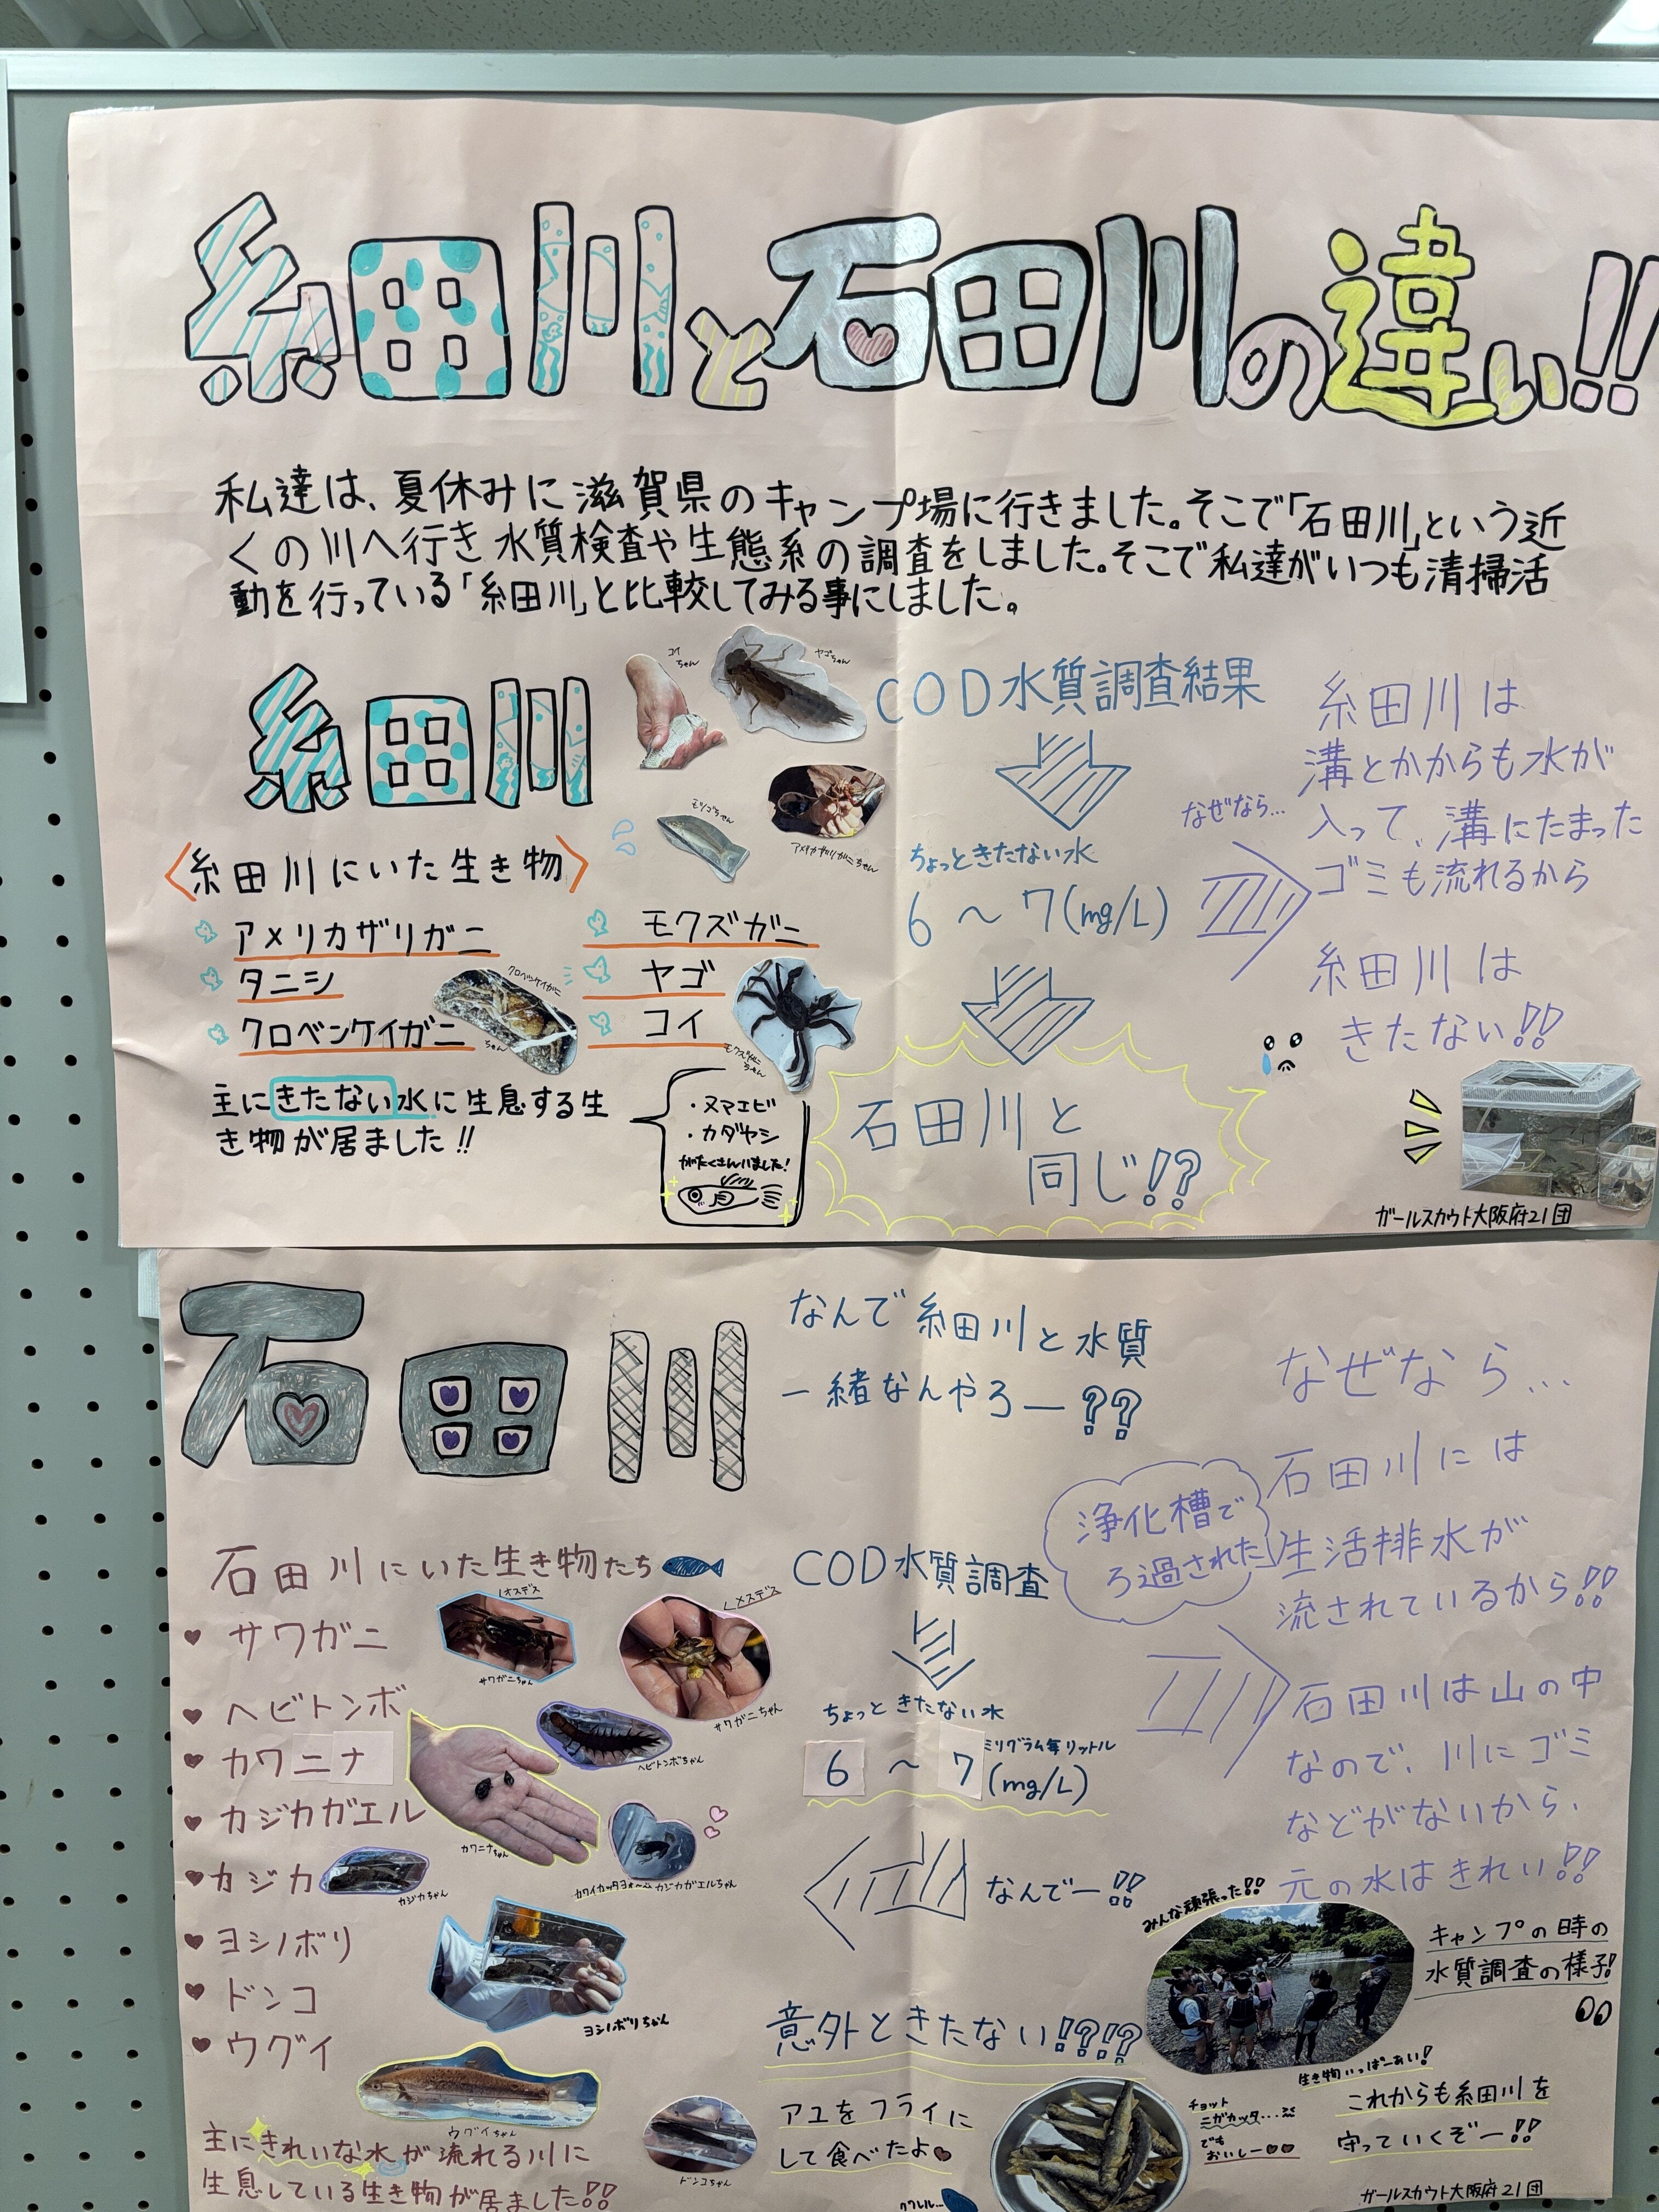 糸田川と石田川の違い!!
私達は、夏休みに滋賀県のキャンプ場に行きました。そこで「石田川」という近
くの川へ行き水質検査や生態系の調査をしました。そこで私達がいつも清掃活
動を行っている「糸田川」と比較してみる事にしました。
糸田川
コイちゃん
ヤゴちゃん
モツゴちゃん
アメリカザリガニちゃん
〈糸田川にいた生き物〉
アメリカザリガニ
タニシ
クロベンケイガニ
モクズガニ
ヤゴ
コイ
クロベンケイガニ
ちゃん
モクズガニ
ちゃん
主にきたない水に生息する生
き物が居ました!!
・ヌマエビ
・カダヤシ
がたくさんいました!
COD水質調査結果
ちょっときたない水
6〜7(mg/L)
石田川と
同じ!?
なぜなら...
糸田川は
溝とかからも水が
入って、溝にたまった
ゴミも流れるから
糸田川は
きたない!!
ガールスカウト大阪府21団
石田川
石田川にいた生き物たち
サワガニ
ヘビトンボ
カワニナ
カジカガエル
カジカ
ヨシノボリ
ドンコ
ウグイ
オスデス
サワガニちゃん
メスデス
サワガニちゃん
ヘビトンボちゃん
カワニナちゃん
カワイカッタヨォ〜 カジカガエルちゃん
カジカちゃん
ヨシノボリちゃん
ウグイちゃん
ドンコちゃん
主にきれいな水が流れる川に
生息している生き物が居ました!!
なんで糸田川と水質
一緒なんやろー??
COD水質調査
ちょっときたない水
6〜7(mg/L)
ミリグラム毎リットル
なんでー!!
意外ときたない!?!?
アユをフライに
して食べたよ
チョット
ニガカッタ...
でも
おいしー
なぜなら...
石田川には
浄化槽で
ろ過された
生活排水が
流されているから!!
石田川は山の中
なので、川にゴミ
などがないから、
元の水はきれい!!
みんな頑張った!!
キャンプの時の
水質調査の様子!
生き物いっぱーい!
これからも糸田川を
守っていくぞー!!
ガールスカウト大阪府21団